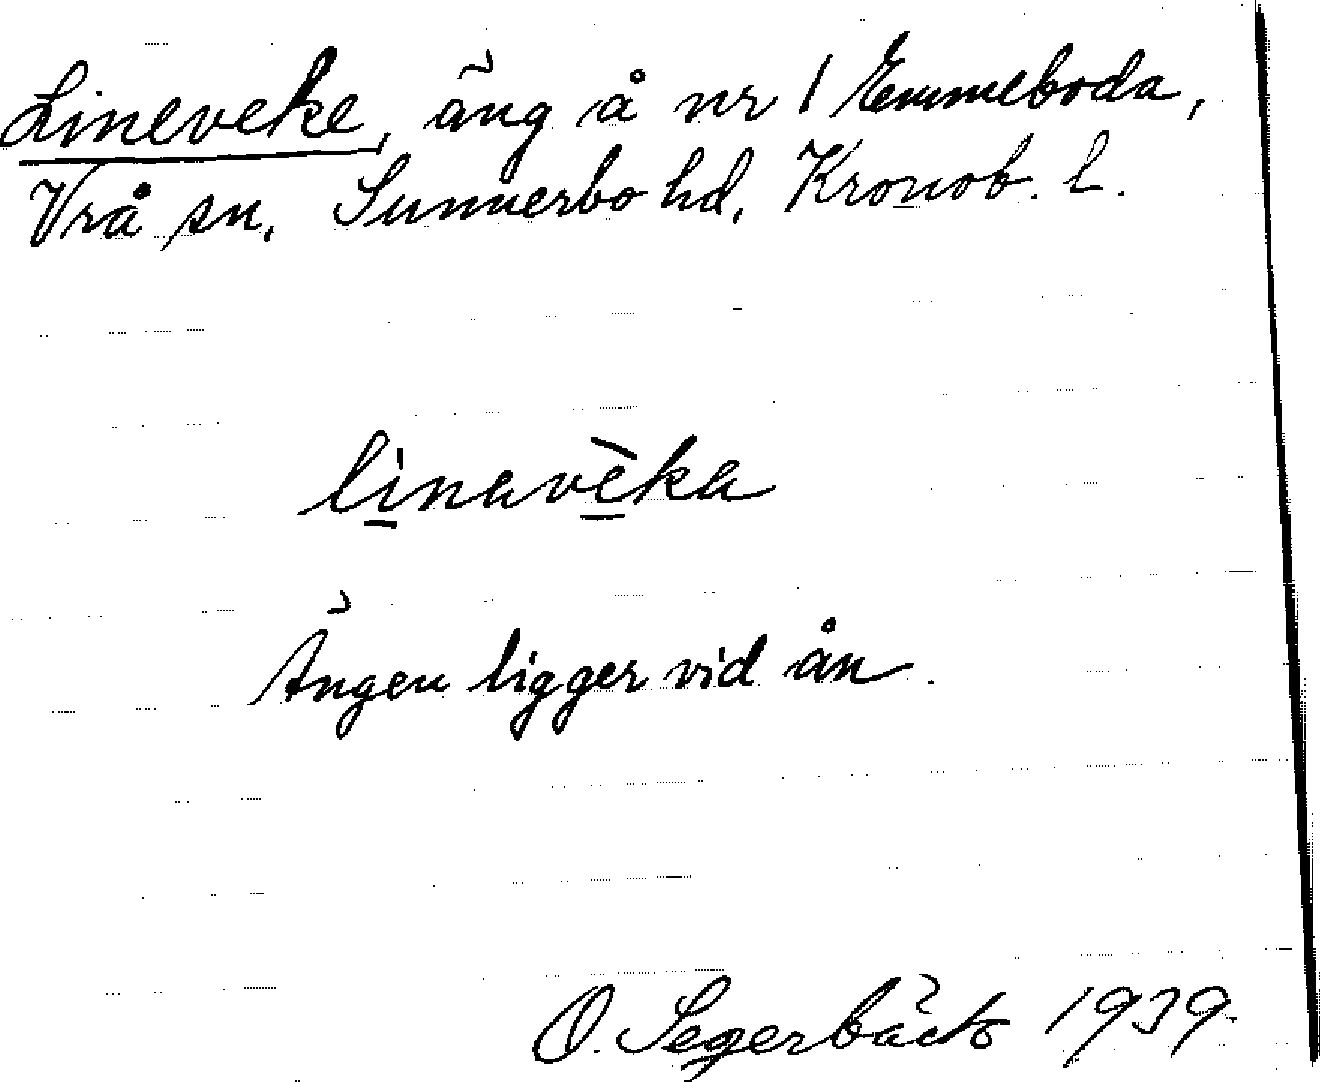 Lineveke, äng å nr 1 Emmeboda,
Vrå sn, Sunnerbo hd, Kronob. l.
linavèka
Ängen ligger vid ån.
O. Segerbäck 1939